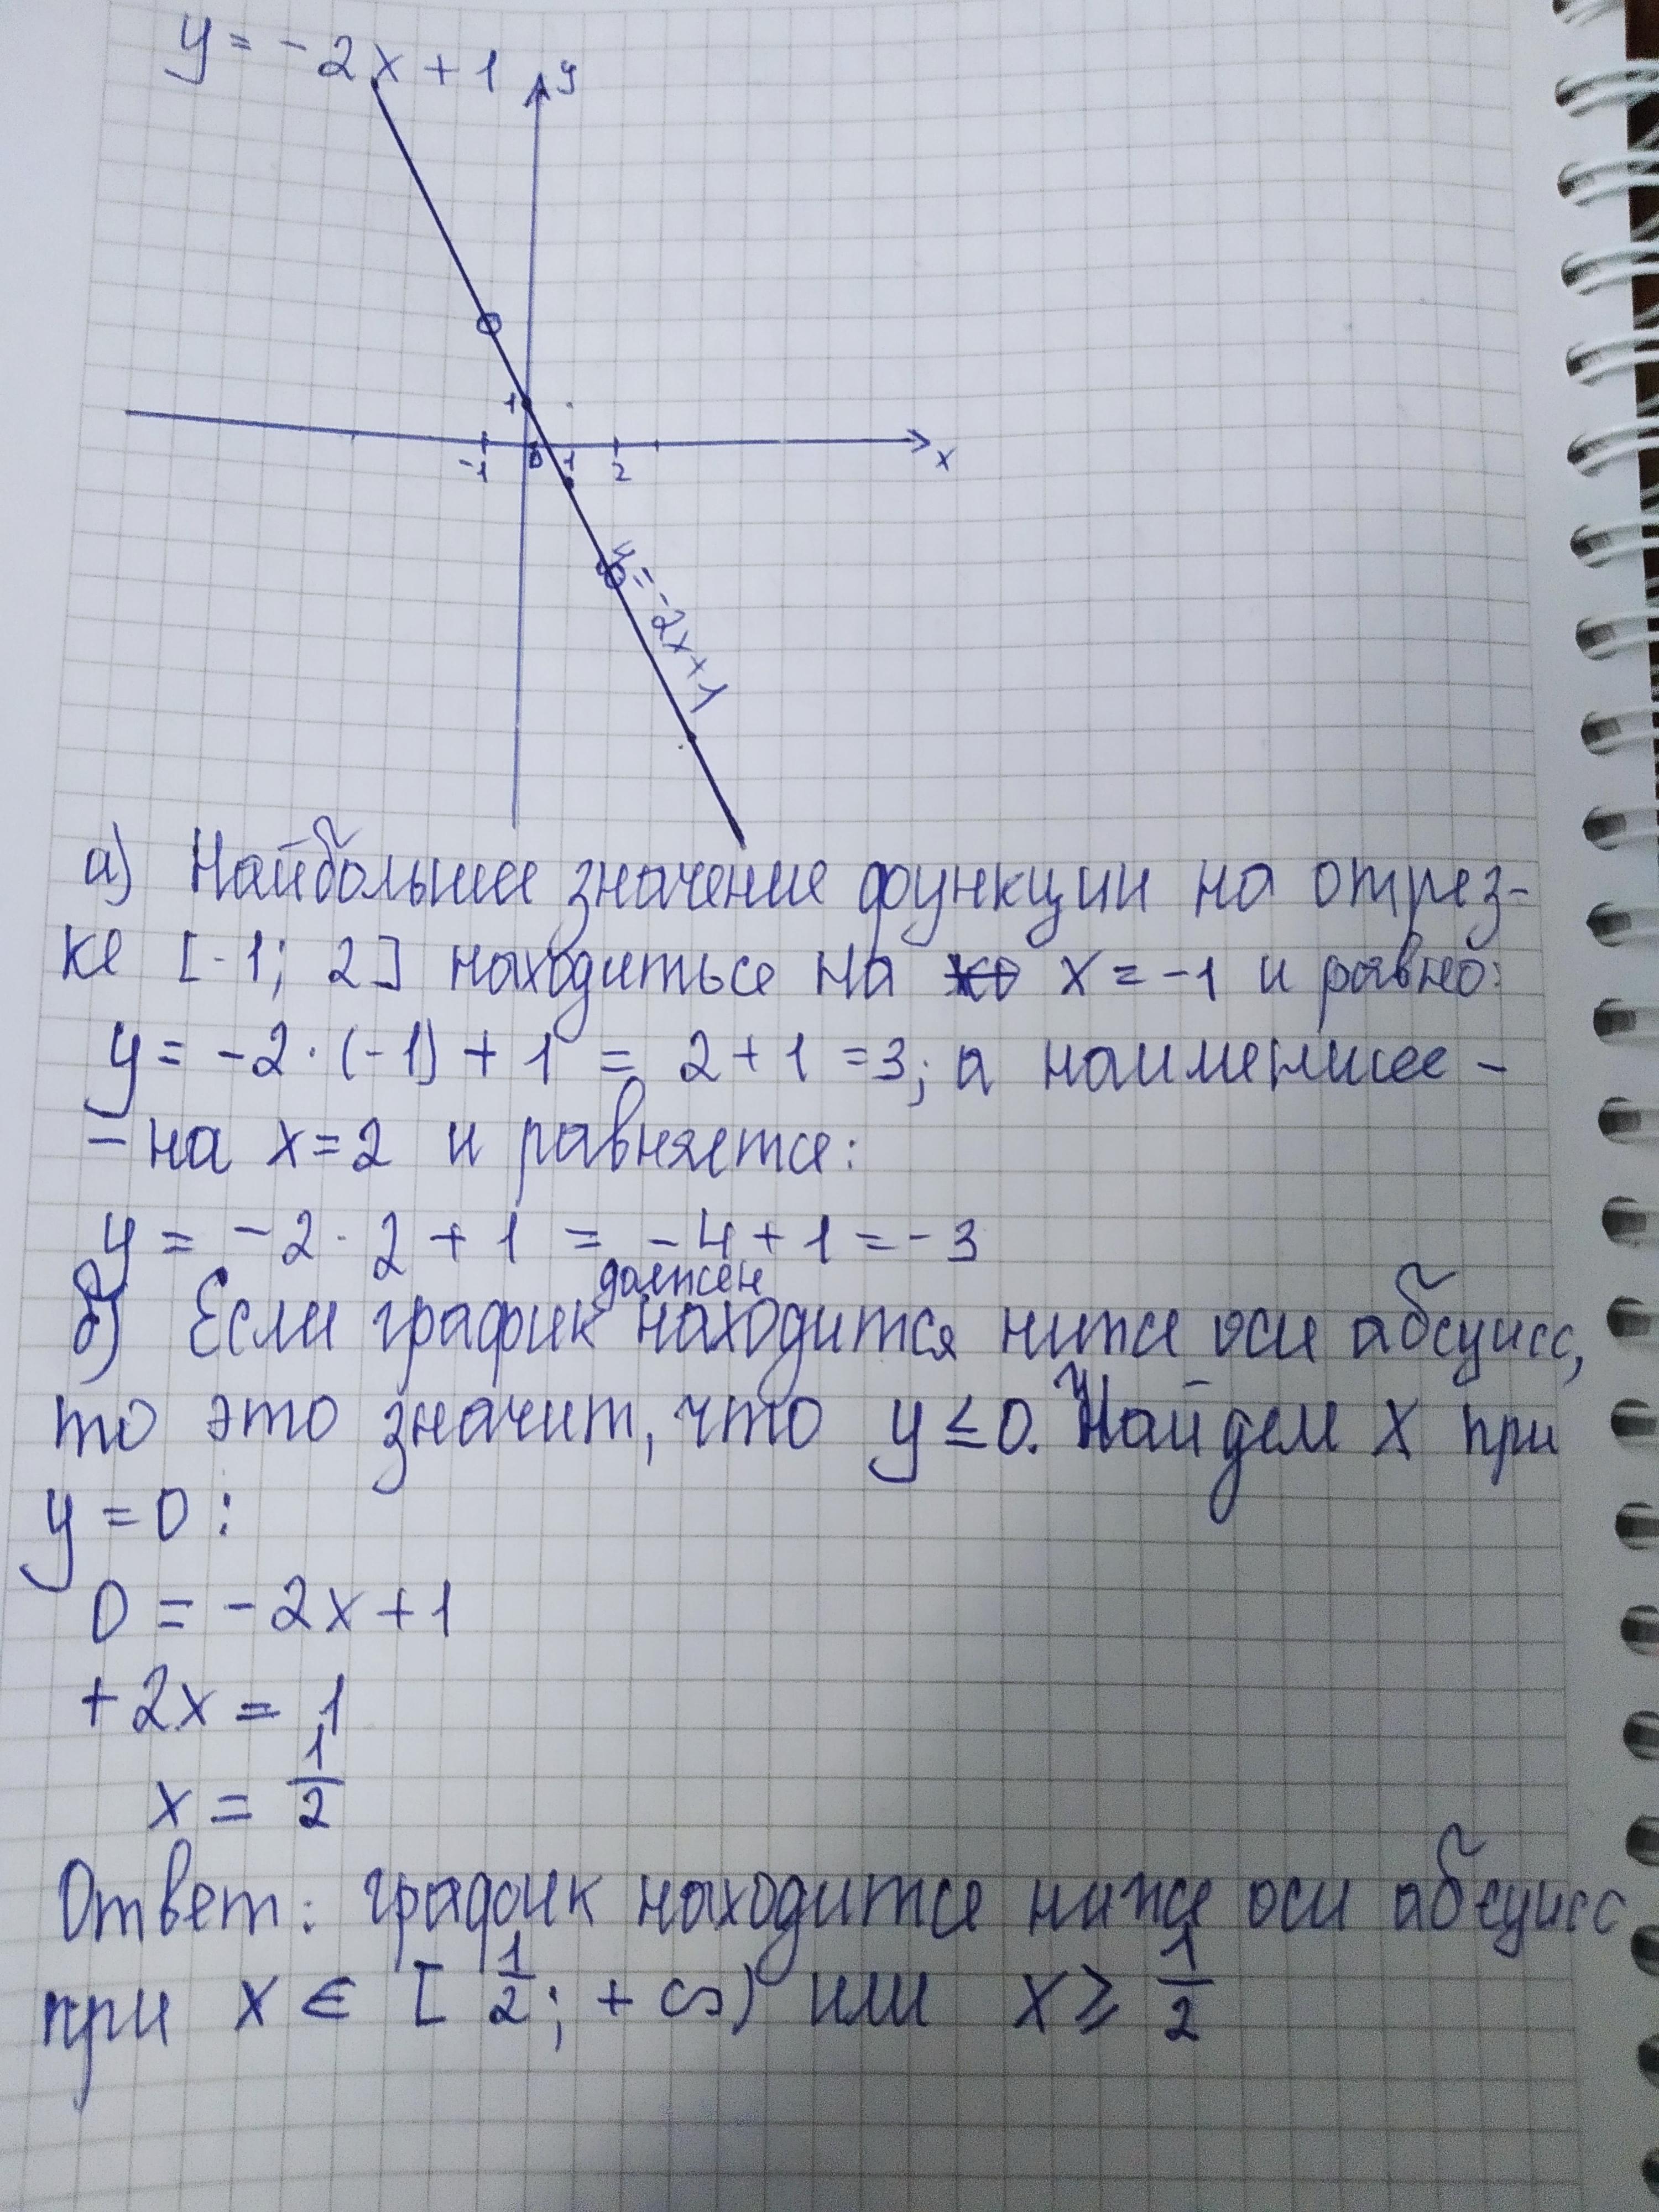 y = -2x + 1
y
1
-1 0 1 2 x
y = -2x + 1
а) Найбольшее значение функции на отрез-
ке [-1; 2] находиться на x = -1 и равно:
y = -2 · (-1) + 1 = 2 + 1 = 3; а наименшее -
- на x = 2 и равняется:
y = -2 · 2 + 1 = -4 + 1 = -3
должен
б) Если график находится ниже оси абсцисс,
то это значит, что y ≤ 0. Найдем x при
y = 0:
0 = -2x + 1
+2x = 1
x = 1/2
Ответ: график находится ниже оси абсцисс
при x ∈ [1/2; +∞) или x ≥ 1/2